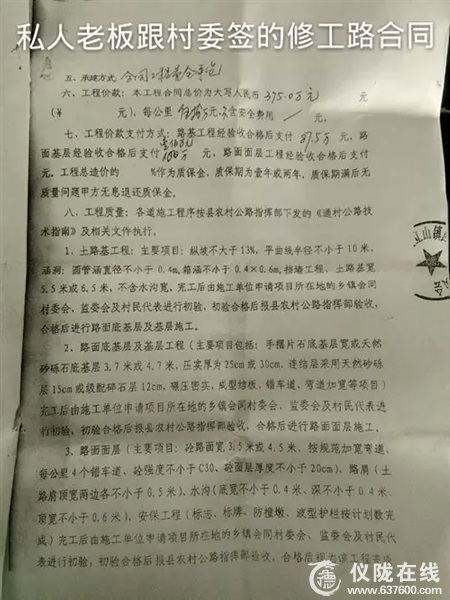 私人老板跟村委签的修工路合同
五、承建方式：合同工程量全承包
六、工程价款：本工程合同总价为大写人民币 375.0万 元
（¥ 元），每公里 万元，不含安全费用 / 元。
七、工程价款支付方式：路基工程经验收合格后支付 87.5万 元，路
面基层经验收合格后支付 100万 元，路面面层工程经验收合格后支付
元。工程总造价的 %作为质保金，质保期为壹年或两年，质保期满后无
质量问题甲方无息退还质保金。
八、工程质量：各道施工程序按县农村公路指挥部下发的《通村公路技
术指南》及相关文件执行。
1、土路基工程：主要项目：纵坡不大于13%，平曲线半径不小于10米，
涵洞：圆管涵直径不小于0.4m，箱涵不小于0.4×0.6m，挡墙工程、土路基宽
5.5米或6.5米，不含水沟宽。完工后由施工单位申请项目所在地的乡镇会同
村委会、监委会及村民代表进行初验，初验合格后报县农村公路指挥部验收，
合格后进行路面底基层及基层施工。
2、路面底基层及基层工程（主要项目包括：手摆片石底基层宽或天然
砂砾石底基层3.7米或4.7米，压实厚为25cm或30cm，连结层采用天然砂砾
层15cm或级配碎石层12cm，碾压密实，成型结板，错车道、弯道加宽等项目）
完工后由施工单位申请项目所在地的乡镇会同村委会、监委会及村民代表进
行初验，初验合格后报县农村公路指挥部验收，合格后进行路面面层施工。
3、路面面层（主要项目：砼路面宽3.5米或4.5米，按规范加宽弯道，
每公里4个错车道、砼强度不小于C30、砼面层厚度不小于20cm）、路肩（土
路肩顶宽两边各不小于0.5米）、水沟（底宽不小于0.4米，深不小于0.4米，
顶宽不小于0.6米）、安保工程（标志、标牌、防撞墩、波型护栏按计划数完
成）完工后由施工单位申请项目所在地的乡镇会同村委会、监委会及村民代
表进行初验，初验合格后报县农村公路指挥部验收，合格后
立山镇
仪陇在线
www.637600.com